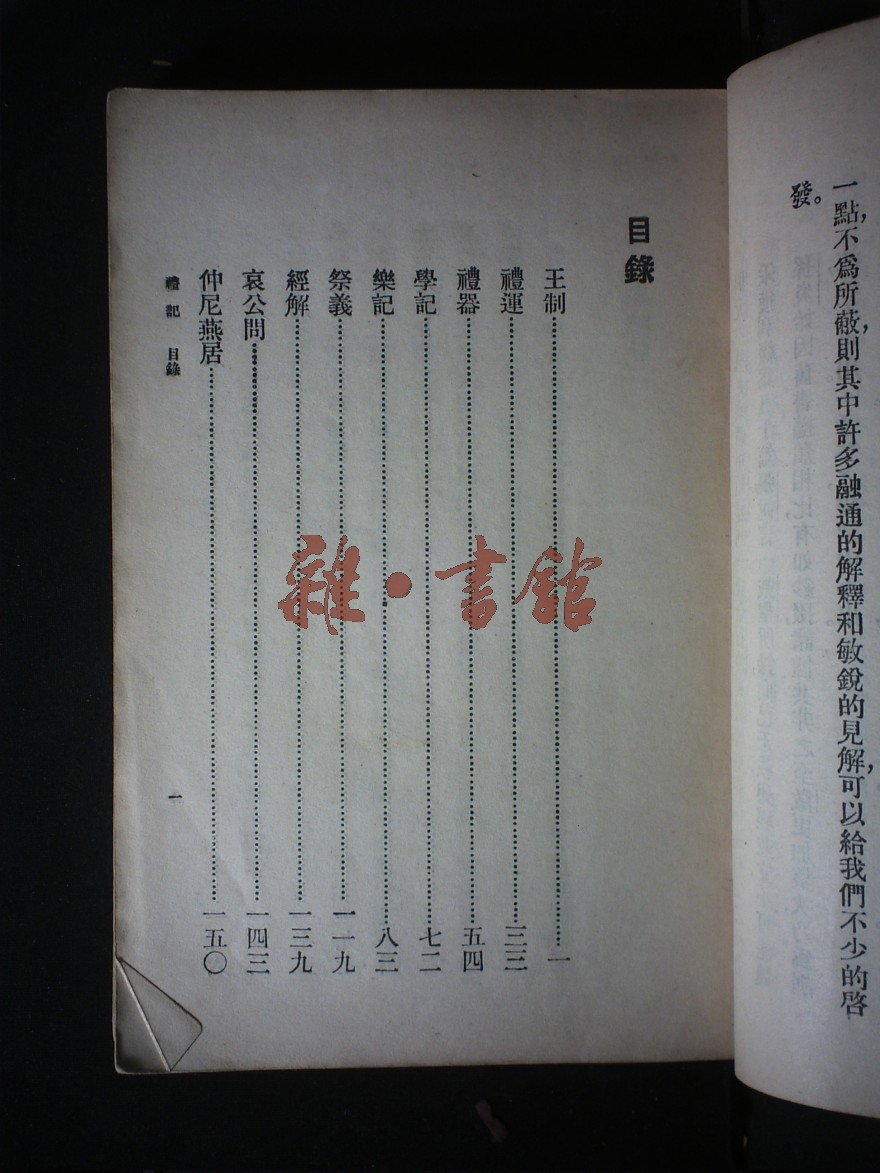 一點,不爲所蔽,則其中許多融通的解釋和敏銳的見解,可以給我們不少的啓
發。
目錄
王制⋯⋯一
禮運⋯⋯三三
禮器⋯⋯五四
學記⋯⋯七二
樂記⋯⋯八三
祭義⋯⋯一一九
經解⋯⋯一三九
哀公問⋯⋯一四三
仲尼燕居⋯⋯一五〇
禮記 目錄
一
雜·書館